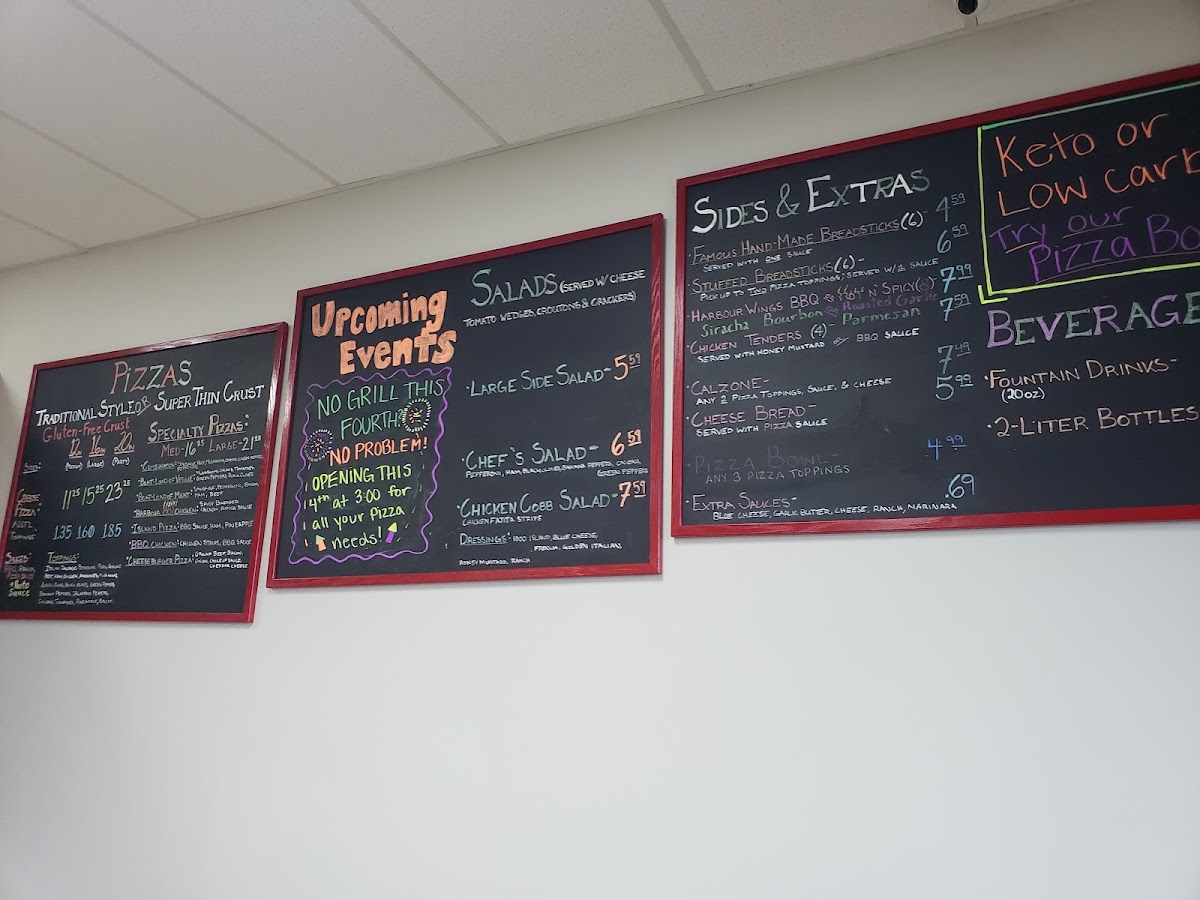 PIZZAS
TRADITIONAL STYLE OR SUPER THIN CRUST
Gluten-Free Crust
12in 16in 20in
(MEDIUM) (LARGE) (PARTY)
CHEESE PIZZA:
11.25 15.25 23.25
ADD'TL TOPPING:
1.35 1.60 1.85
SAUCES:
BBQ, RANCH,
PIZZA SAUCE
*Pesto
Sauce
TOPPINGS:
SPECIALTY PIZZAS:
MED-16.25 LARGE-21.25
·COMBINATION:
·BOAT-LOAD OF VEGGIE:
·BOAT-LOAD OF MEAT:
HAM, BEEF
·HARBOUR HOT CHICKEN:
·ISLAND PIZZA: BBQ SAUCE, HAM, PINEAPPLE
·BBQ CHICKEN: CHICKEN STRIPS, BBQ SAUCE
·CHEESEBURGER PIZZA: GROUND BEEF, BACON,
CHEDDAR CHEESE
Upcoming
Events
NO GRILL THIS
FOURTH?
NO PROBLEM!
OPENING THIS
4th at 3:00 for
all your Pizza
needs!
SALADS (SERVED W/ CHEESE
TOMATO WEDGES, CROUTONS & CRACKERS)
·LARGE SIDE SALAD- 5.59
·CHEF'S SALAD- 6.59
PEPPERONI, HAM, BLACK OLIVES, BANANA PEPPERS, ONIONS,
GREEN PEPPERS
·CHICKEN COBB SALAD- 7.59
CHICKEN FAJITA STRIPS
DRESSINGS: 1000 ISLAND, BLUE CHEESE,
FRENCH, GOLDEN ITALIAN,
HONEY MUSTARD, RANCH
SIDES & EXTRAS
·FAMOUS HAND-MADE BREADSTICKS (6)- 4.59
SERVED WITH ONE SAUCE
·STUFFED BREADSTICKS (6)- 6.59
PICK UP TO TWO PIZZA TOPPINGS; SERVED W/ 2 SAUCE
·HARBOUR WINGS BBQ or HOT N' SPICY (8) 7.99
Siracha Bourbon or Roasted Garlic
Parmesan
·CHICKEN TENDERS (4)- 7.59
SERVED WITH HONEY MUSTARD or BBQ SAUCE
·CALZONE- 7.49
ANY 2 PIZZA TOPPINGS, SAUCE, & CHEESE
·CHEESE BREAD- 5.99
SERVED WITH PIZZA SAUCE
·PIZZA BOWL- 4.99
ANY 3 PIZZA TOPPINGS
·EXTRA SAUCES- .69
BLUE CHEESE, GARLIC BUTTER, CHEESE, RANCH, MARINARA
Keto or
Low carb
Try our
Pizza Bo
BEVERAGE
·FOUNTAIN DRINKS-
(20oz)
·2-LITER BOTTLES